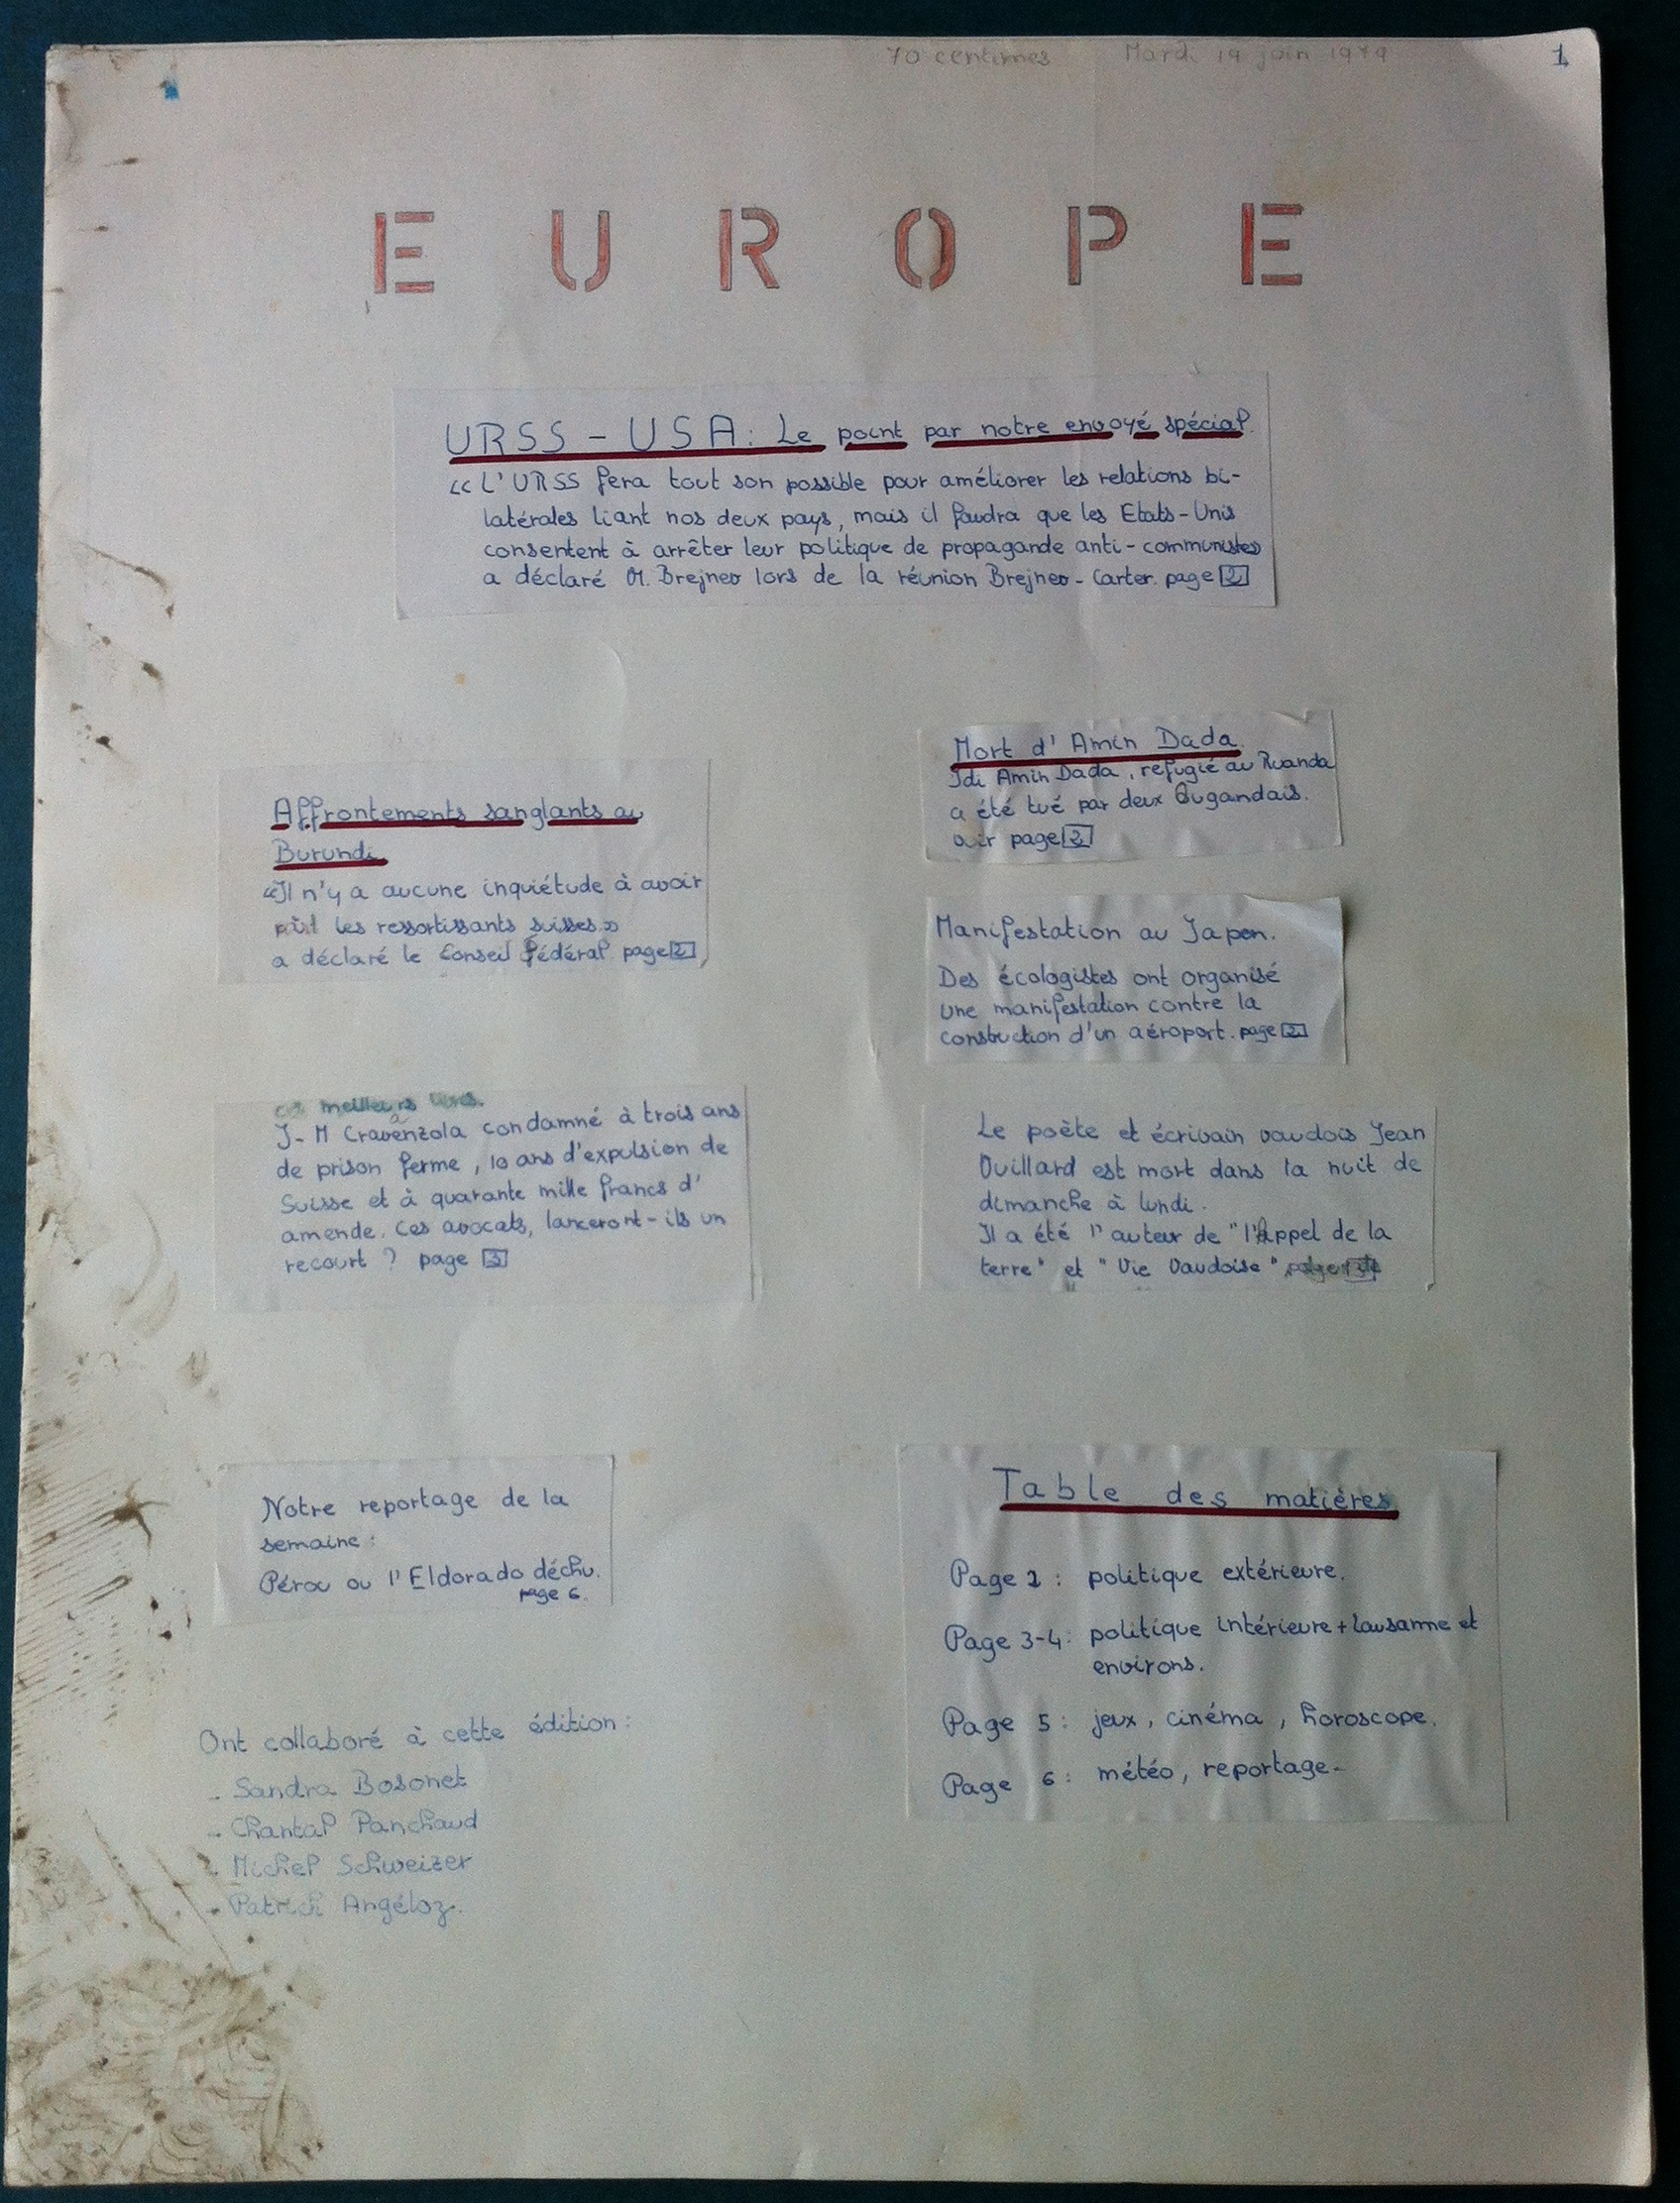 70 centimes Mardi 19 juin 1979 1
EUROPE
URSS - USA: Le point par notre envoyé spécial.
« L'URSS fera tout son possible pour améliorer les relations bi-
latérales liant nos deux pays, mais il faudra que les Etats-Unis
consentent à arrêter leur politique de propagande anti-communiste»
a déclaré M. Brejnev lors de la réunion Brejnev-Carter. page 2
Affrontements sanglants au
Burundi
«Il n'y a aucune inquiétude à avoir
les ressortissants suisses.»
a déclaré le Conseil Fédéral page 2
Mort d'Amin Dada
Idi Amin Dada, refugié au Ruanda
a été tué par deux Ougandais.
voir page 2
Manifestation au Japon.
Des écologistes ont organisé
une manifestation contre la
construction d'un aéroport. page 2
meilleurs
J-M Cravenzola condamné à trois ans
de prison ferme, 10 ans d'expulsion de
Suisse et à quarante mille francs d'
amende. Ces avocats, lanceront-ils un
recourt ? page 3
Le poète et écrivain vaudois Jean
Villard est mort dans la nuit de
dimanche à lundi.
Il a été l'auteur de "l'Appel de la
terre" et "Vie Vaudoise"
Notre reportage de la
semaine:
Pérou ou l'Eldorado déchu.
page 6.
Table des matières
Page 2: politique extérieure.
Page 3-4: politique intérieure + Lausanne et
environs.
Page 5: jeux, cinéma, horoscope.
Page 6: météo, reportage.
Ont collaboré à cette édition:
- Sandra Bosonet
- Chantal Panchaud
- Michel Schweizer
- Patrick Angéloz.